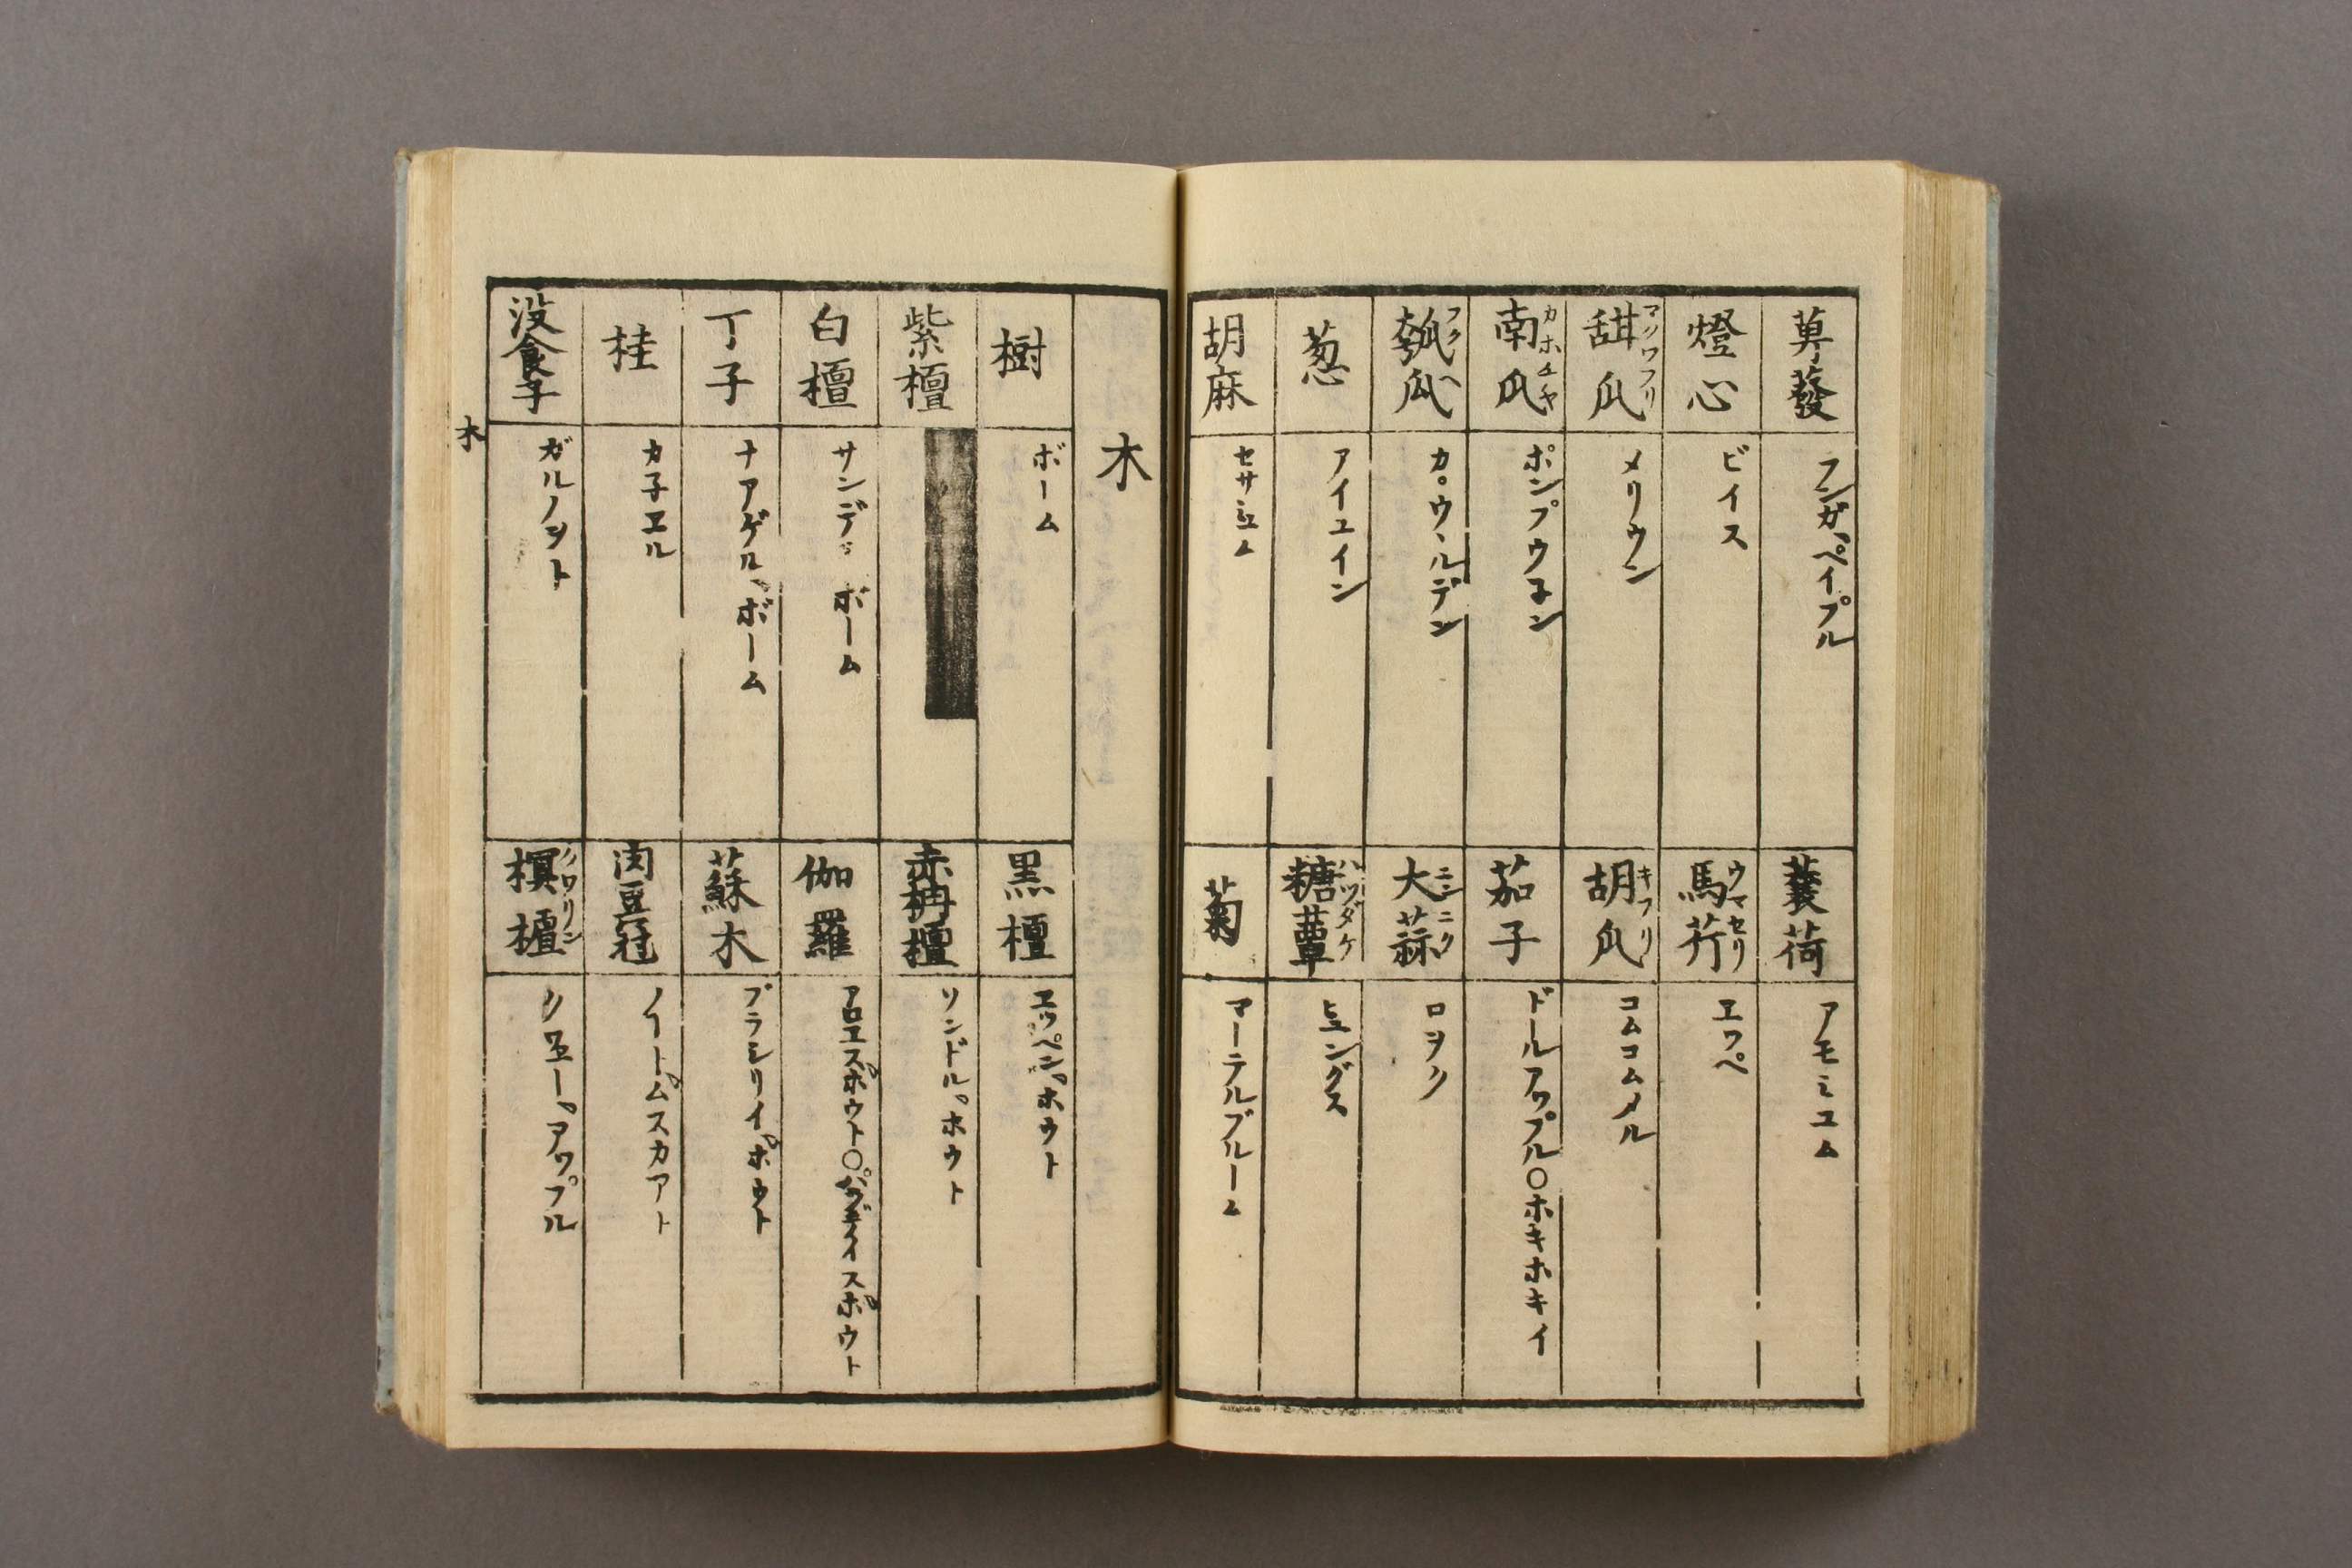 蓽蕟 フンガ゜ペイプル
燈心 ビイス
甜瓜 マクワフリ メリウン
南瓜 カホチヤ ポンプウ子ン
瓠瓜 フクベ カ。ウ、ルデン
葱 アイユイン
胡麻 セサミユム
蘘荷 アモミユム
馬芹 ウマセリ エツペ
胡瓜 キフリ コムコムメル
茄子 ドールアツプル〇ホキホキイ
大蒜 ニンニク ロヲク
糖蕈 ハツダケ ヒユングス
菊 マーテルブルーム
木
樹 ボーム
紫檀
白檀 サンデ ボーム
丁子 ナアゲル、ボーム
桂 カ子エル
没食子 ガルノヲト
黒檀 エツペン゜ホウト
赤栴檀 ソンドル゜ホウト
伽羅 アロエスポウト〇パラデイスポウト
蘇木 ブラシリイ゜ポウト
肉豆蔲 ノート゜ムスカアト
榠樝 クワリン クエー゜アツプル
木